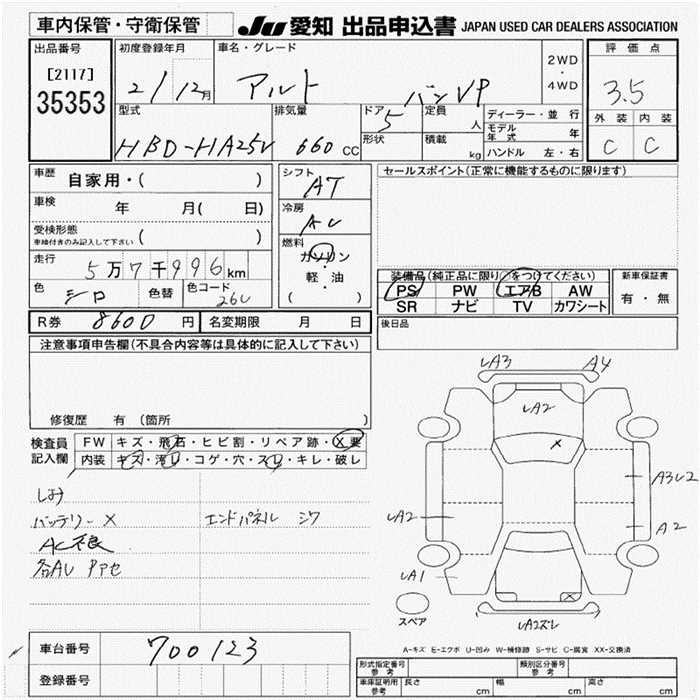 車内保管・守衛保管
JU 愛知 出品申込書 JAPAN USED CAR DEALERS ASSOCIATION
出品番号
[2117]
35353
初度登録年月
21/12月
車名・グレード
アルト バンVP
2WD
・
4WD
評価点
3.5
外装 内装
C C
型式
HBD-HA25V
排気量
660 CC
ドア 5
形状
定員 人
積載 kg
ディーラー・並行
モデル年式 年
ハンドル 左・右
車歴 自家用・( )
車検 年 月( 日)
受検形態
車検付きのみ記入して下さい ( )
走行 5万7千996km
色 シロ 色替 色コード 26U
シフト AT
冷房 AC
燃料
ガソリン
・
軽・油
( )
セールスポイント(正常に機能するものに限ります)
装備品(純正品に限り○をつけてください)
PS PW エアB AW
SR ナビ TV カワシート
新車保証書
有・無
R券 8600円 名変期限 月 日
後日品
注意事項申告欄(不具合内容等は具体的に記入して下さい)
修復歴 有 (箇所 )
検査員記入欄
FW キズ・飛石・ヒビ割・リペア跡・X要
内装 キズ・汚レ・コゲ・穴・スレ・キレ・破レ
しみ
バッテリー× エンドパネル シワ
AC不良
各AU Pアセ
LA3 A4
LA2
×
A3U2
LA2
A2
LA1
×
スペア
LA2ズレ
A-キズ E-エクボ U-凹み W-補修跡 S-サビ C-腐食 XX-交換済
車台番号 700123
登録番号
形式指定番号 参考
類別区分番号 参考
車庫証明用 参考 長さ cm 幅 cm 高さ cm